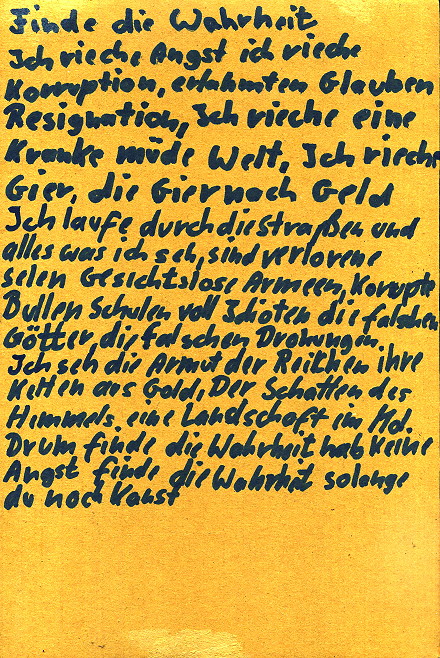 Finde die Wahrheit
Ich rieche Angst ich rieche
Korruption, erlahmten Glauben
Resignation, Ich rieche eine
Kranke müde Welt, Ich rieche
Gier, die Gier nach Geld
Ich laufe durch die straßen und
alles was ich seh, sind verlorene
selen Gesichtslose Armeen, Korupte
Bullen Schulen voll Idioten die falschen
Götter die falschen Drohungen.
Ich seh die Armut der Reichen ihre
Ketten aus Gold, Der Schatten des
Himmels. eine Landschaft in
Drum finde die Wahrheit hab keine
Angst finde die Wahrheit solange
du noch Kanst